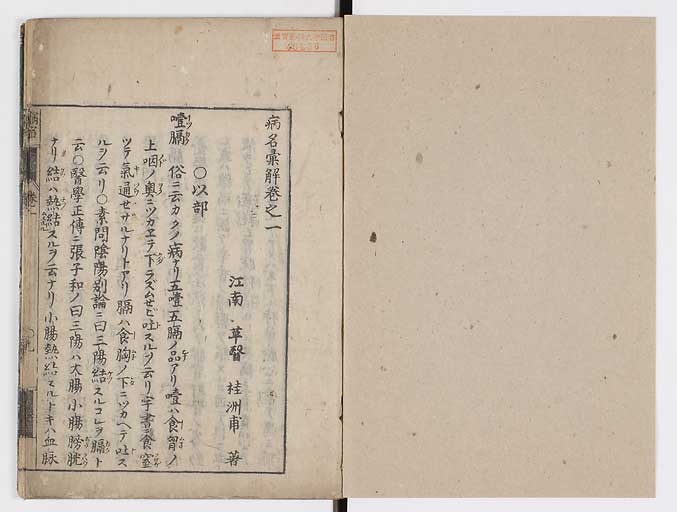 病名彙解卷之一
江南 草醫 桂洲甫 著
○以部
噎膈 俗ニ云カクノ病ナリ五噎五膈ノ品アリ噎ハ食胃ノ
上咽ノ奥ニツカエテ下ラズムセビ吐スルヲ云リ字書ニ食窒
ツテ氣通セザルナリトアリ膈ハ食胸ノ下ニツカヘテ吐ス
ルヲ云リ○素問陰陽別論ニ曰三陽結スルコレヲ膈ト
云○醫學正傳ニ張子和ノ曰三陽ハ大腸小腸膀胱
ナリ結ハ熱結スルヲ云ナリ小腸熱結スルトキハ血脉